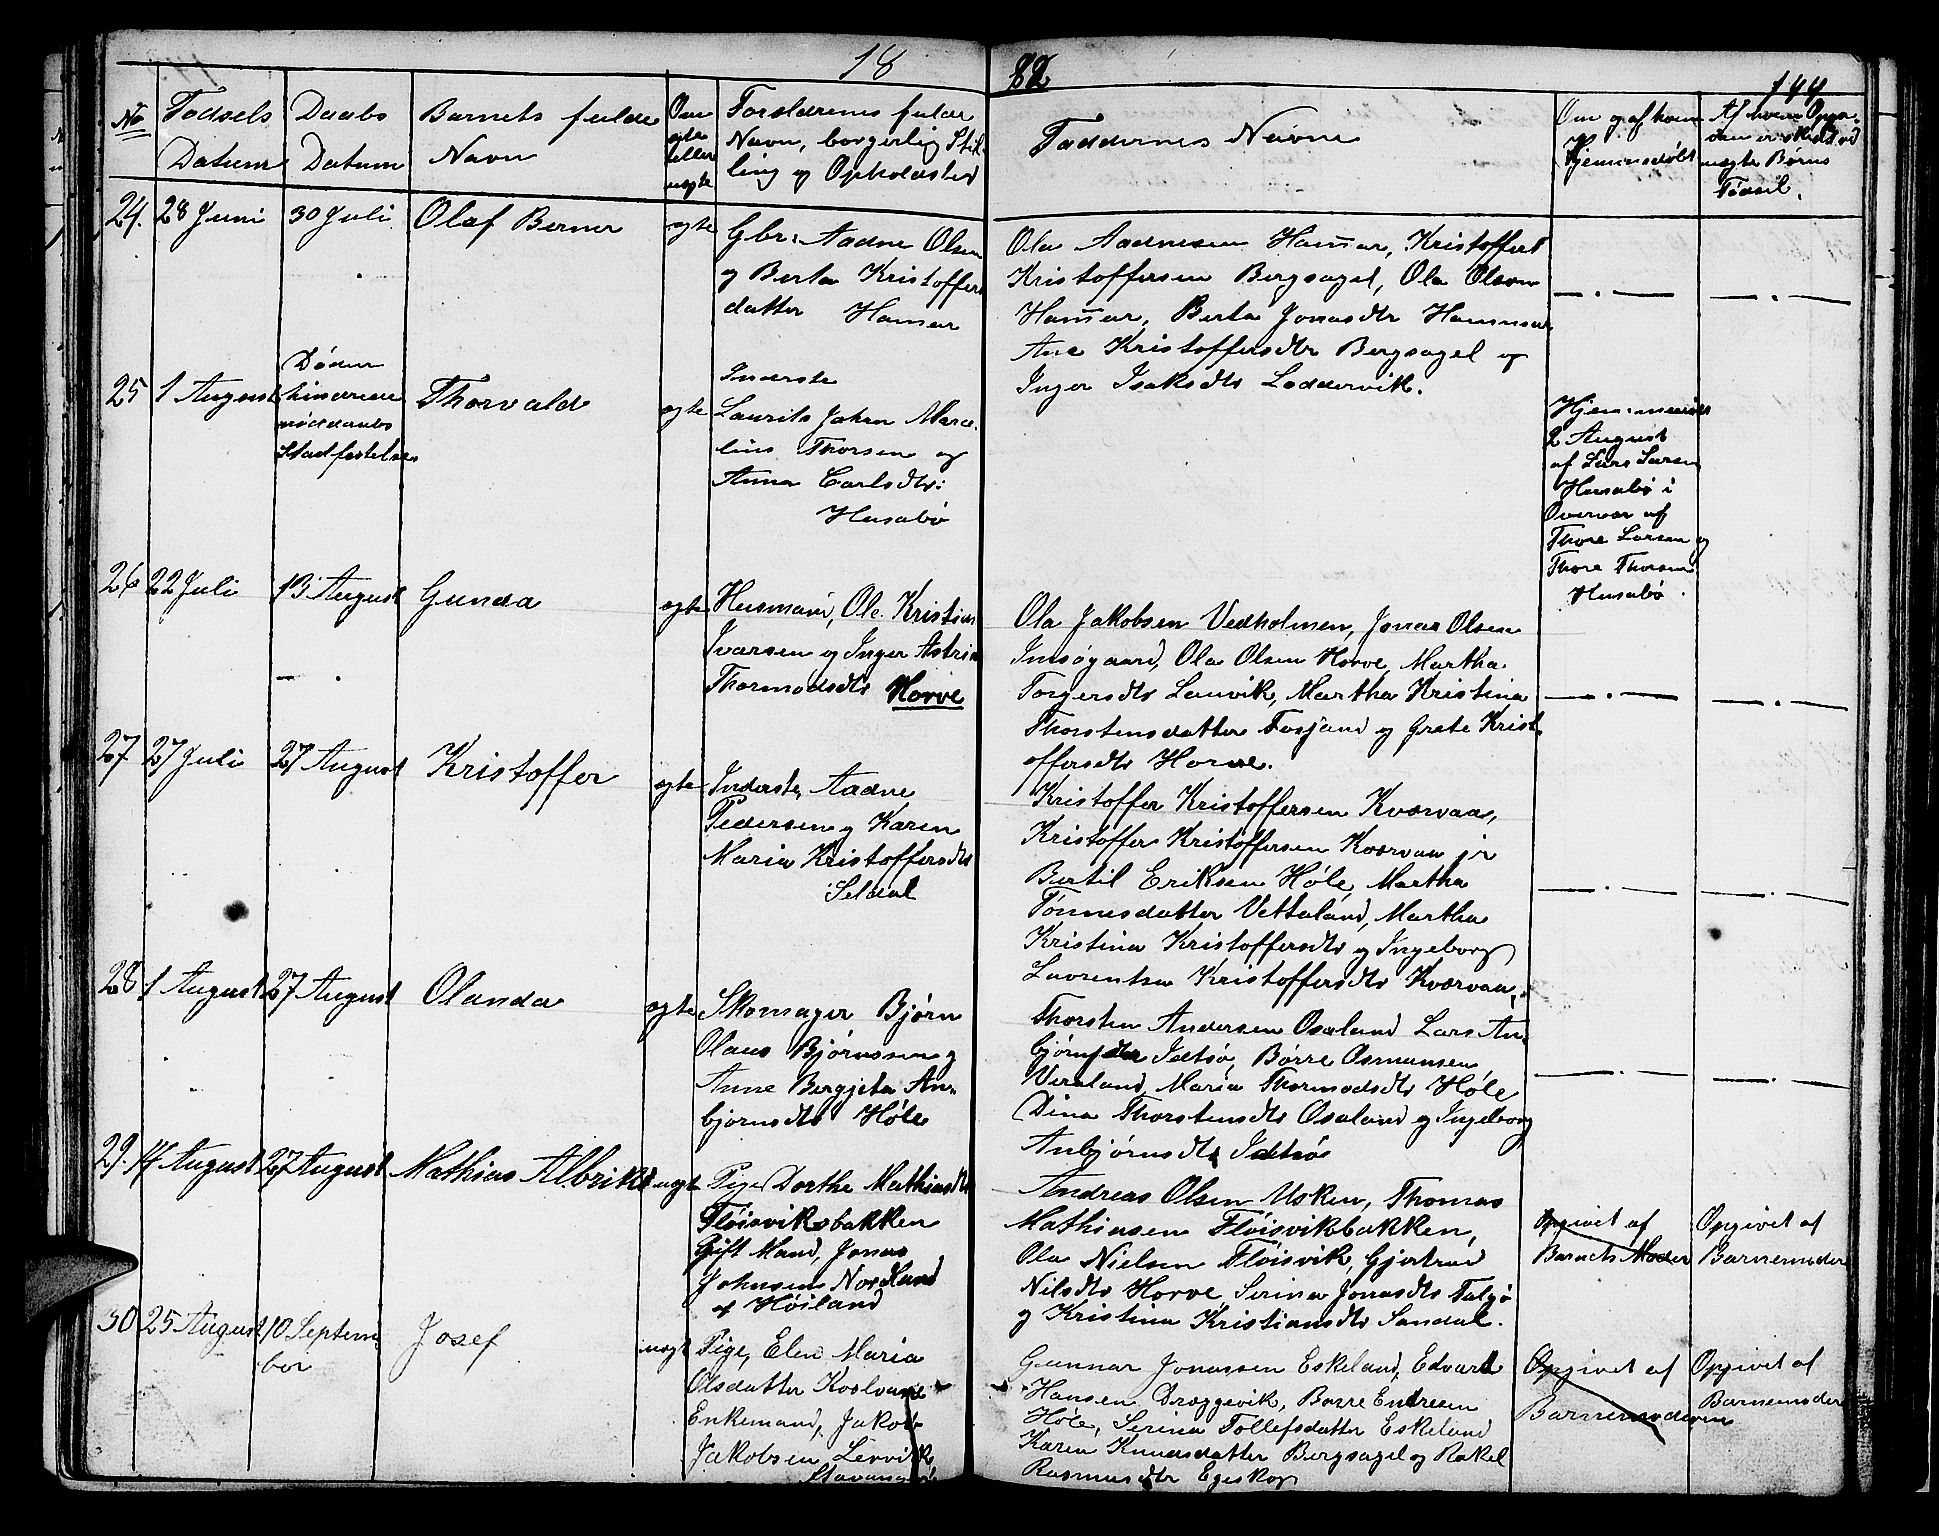 18 82 144
No
Fødsels Datum
Daabs Datum
Barnets fulde Navn
Om ægte eller uægte
Forældrenes fulde
Navn, borgerlig Stil-
ling og Opholdsted
Faddernes Navne
Om og af hvem Hjemmedøbt
Af hvem Opga-
ven er skedt ved
uægte Børns
Fødsel.
24. 28 Juni 30 Juli Olaf Berner ægte
Gbr: Aadne Olsen
og Berta Kristoffers
datter Hamar
Ola Aadnesen Ham̄ar, Kristoffer
Kristoffersen Bergsagel, Ola Olsen
Ham̄ar, Berta Jonasdtr Hammar
Ane Kristoffersdtr Bergsagel og
Inger Isaksdtr Loddervik.
25 1 August
Døden
hindrede
nøddaabs
Stadfestelse
Thorvald ægte
Inderste
Laurits Johan Marce-
lius Thorsen og
Anna Carlsdtr:
Husabø
Hjemmedøbt
2 August
af Lars Larsen
Husabø i
Overvær af
Thore Larsen og
Thore Thorsen
Husabø.
26 22 Juli 13 August Gunda ægte
Husmand, Ole Kristian
Iversen og Inger Astrine
Thormodsdtr Horve
Ola Jakobsen Vedholmen, Jonas Olsen
Imsøgaard, Ola Olsen Horve, Martha
Torgersdtr Lauvik, Martha Kristina
Thorstensdatter Fosjand og Grete Krist-
offersdtr Horve.
27 27 Juli 27 August Kristoffer ægte
Inderste, Aadne
Pedersen og Karen
Maria Kristoffersdtr
Seldal
Kristoffer Kristoffersen Kværvaa,
Kristoffer Kristoffersen Kværvaa jr
Bertil Eriksen Høle, Martha
Tønnesdatter Vettaland, Martha
Kristina Kristoffersdtr og Ingeborg
Laurentsa Kristoffersdtr Kværvaa.
28 1 August 27 August Olanda ægte
Skomager Bjørn
Olaus Bjørnssen og
Anne Bergjeta An-
bjørnsdtr Høle
Thorsten Andersen Osaland Lars An-
bjørns Idtsø, Børre Osmunsen
Veraland, Maria Thormodsdtr Høle
Dina Thorstensdtr Osaland og Ingeborg
Anbjørnsdtr Idtsø
29. 14 August 27 August Mathias Albrikt uægte
Pige, Dorthe Mathiasdtr
Fløisviksbakken
Gift Mand, Jonas
Johnsen Nordland
af Høiland
Andreas Olsen Usken, Thomas
Mathiasen Fløisvikbakken,
Ola Nielsen Fløisvik, Gjertrud
Nilsdtr Horve, Serina Jonasdtr Talgø
og Kristina Kristiansdtr Sandal.
Opgivet af
Barnets Moder
Opgivet af
Barnemoder
30 25 August 10 Septem-
ber
Josef uægt
Pige, Elen Maria
Olsdatter
Enkemand, Jakob
Jakobsen Lervik,
Gunnar Jonassen Eskeland, Edvard
Hansen Dreggevik, Børre Endresen
Høle, Serina Tollefsdatter Eskeland
Karen Knudsdatter Bergsagel og Rakel
Rasmusdtr Egeskog
Opgivet af
Barnemoderen
Opgivet af
Barnemoder